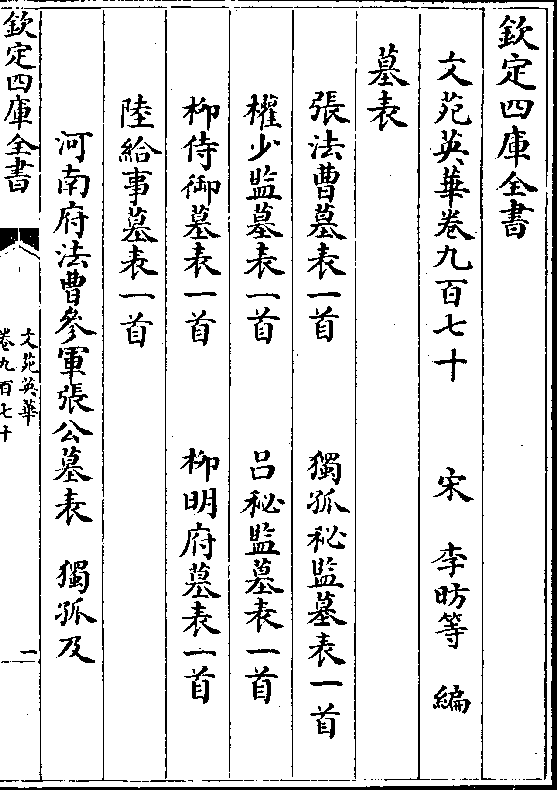 欽定四庫全書
文苑英華卷九百七十　宋　李昉等　編
墓表
張法曹墓表一首　獨孤秘監墓表一首
權少監墓表一首　吕秘監墓表一首
柳侍御墓表一首　柳明府墓表一首
陸給事墓表一首
河南府法曹參軍張公墓表　獨孤及
欽定四庫全書
文苑英華
卷九百七十
一